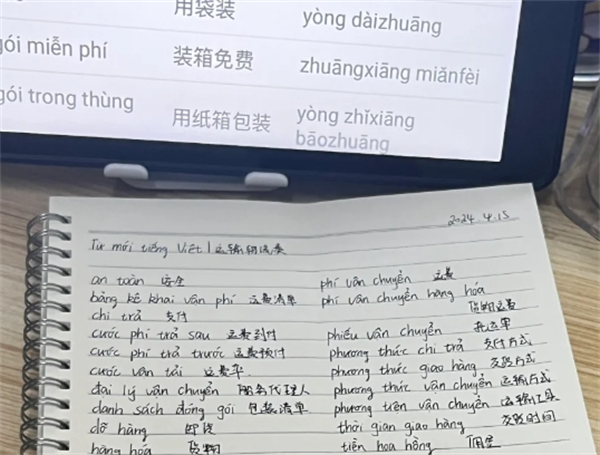 用袋装 yòng dàizhuāng
gói miễn phí 装箱免费 zhuāngxiāng miǎnfèi
gói trong thùng 用纸箱包装 yòng zhǐxiāng
bāozhuāng
2024.4.15
Từ mới tiếng Việt | 运输物流类
an toàn 安全 phí vận chuyển 运费
bảng kê khai vận phí 运费清单 phí vận chuyển hàng hóa
chi trả 支付 货物运费
cước phí trả sau 运费到付 phiếu vận chuyển 托运单
cước phí trả trước 运费预付 phương thức chi trả 支付方式
cước vận tải 运费率 phương thức giao hàng 交货方式
đại lý vận chuyển 服务代理人 phương thức vận chuyển 运输方式
danh sách đóng gói 包装清单 phương tiện vận chuyển 运输工具
dỡ hàng 卸货 thời gian giao hàng 交货时间
hàng hóa 货物 tiền hoa hồng 佣金